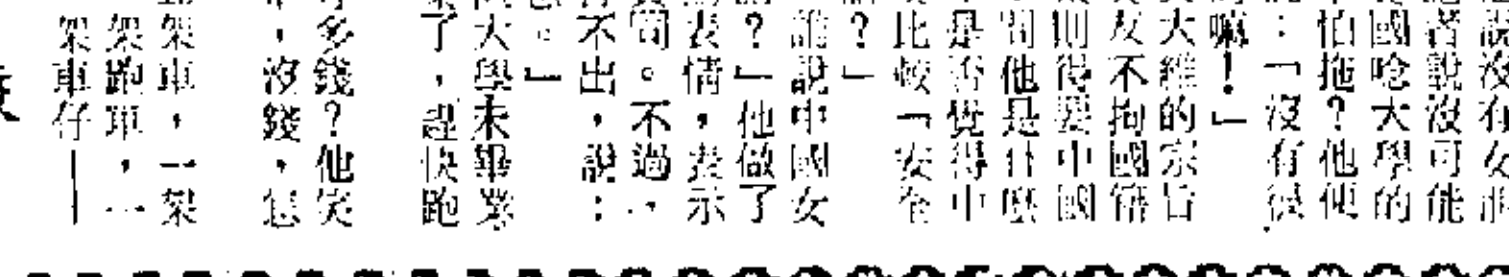 說沒有女朋
者說沒可能
國唸大學的
怕拖？他便
：「沒有很
嘛！」
大維的宗旨
友不拘國籍
則得要中國
問他是什麼
是否覺得中
比較「安全
？」
誰說中國女
？」他做了
表情，表示
司。不過，
不出，說：
。」
大學未畢業
了，趕快跑
多錢？他笑
，沒錢，怎
架車，一架
架跑車，一
架車仔——